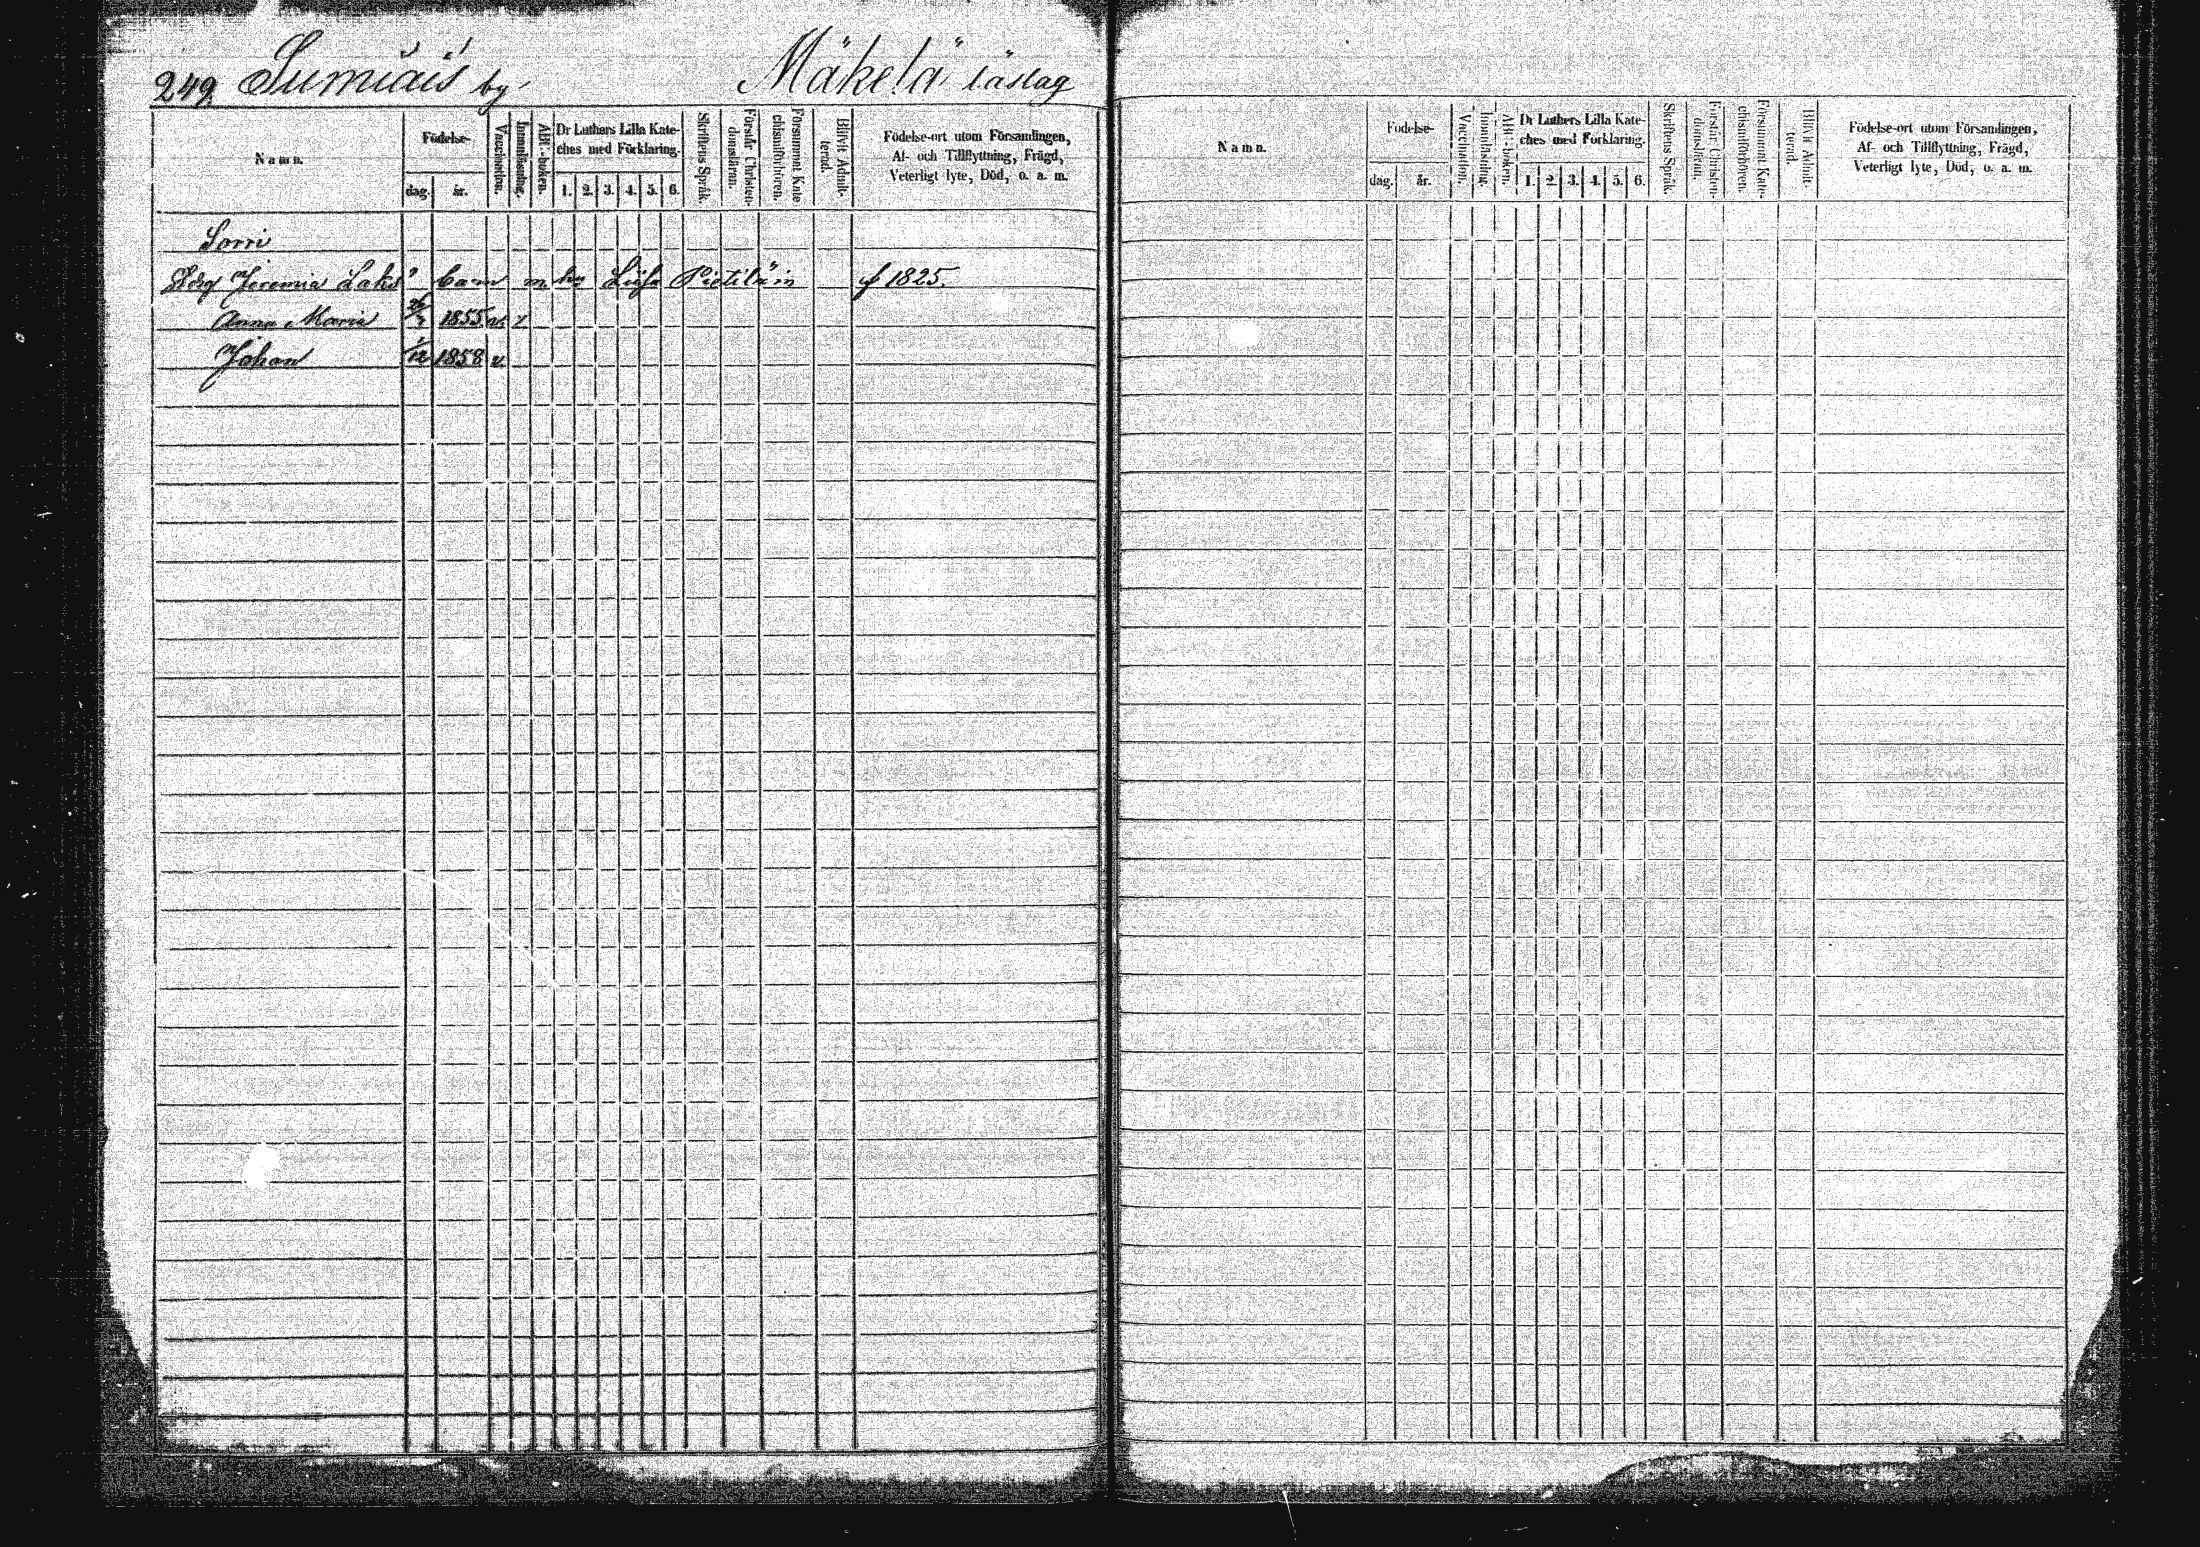 249. Sumiais by Mäkelä läslag
Namn. Födelse- dag. år. Vaccination. Innanläsning. ABC-boken. Dr Luthers Lilla Kateches med Förklaring. 1. 2. 3. 4. 5. 6. Skriftens Språk. Förstår Christendomsläran. Försummat Katechismiförhören. Blifvit Admitterad. Födelse-ort utom Församlingen, Af- och Tillflyttning, Frägd, Veterligt lyte, Död, o. a. m.
Sorri
Jeremia Laks" barn m hu Pietilä in f 1825.
Anna Maria 1855 v. /
Johan 1/12 1858 v.
Namn. Födelse- dag. år. Vaccination. Innanläsning. ABC-boken. Dr Luthers Lilla Kateches med Förklaring. 1. 2. 3. 4. 5. 6. Skriftens Språk. Förstår Christendomsläran. Försummat Katechismiförhören. Blifvit Admitterad. Födelse-ort utom Församlingen, Af- och Tillflyttning, Frägd, Veterligt lyte, Död, o. a. m.